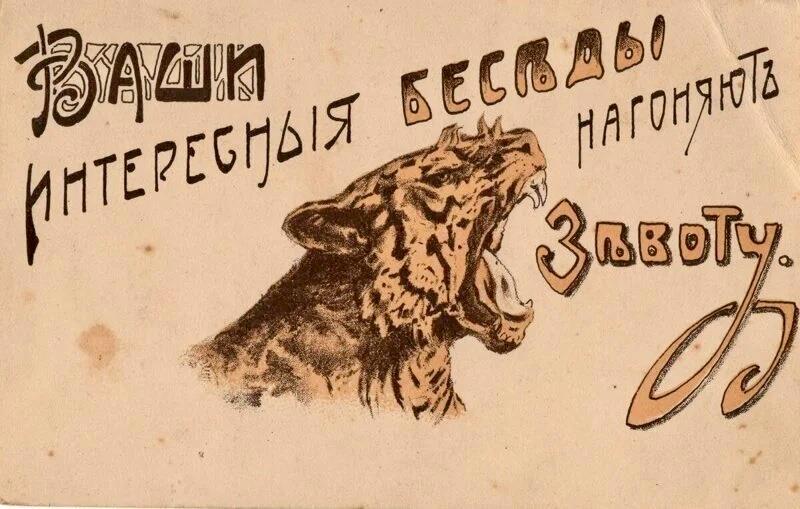 Ваши
интересныя бесѣды
нагоняютъ
зѣвоту.